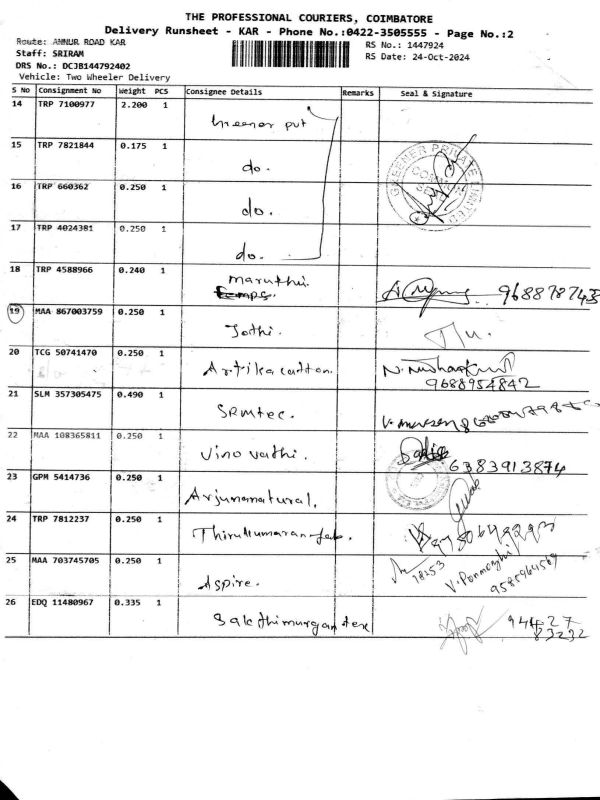 THE PROFESSIONAL COURIERS, COIMBATORE
Delivery Runsheet - KAR - Phone No.:0422-3505555 - Page No.:2
Route: ANNUR ROAD KAR
RS No.: 1447924
Staff: SRIRAM
RS Date: 24-Oct-2024
DRS No.: DCJB144792402
Vehicle: Two Wheeler Delivery
S No Consignment No Weight PCS Consignee Details Remarks Seal & Signature
14 TRP 7100977 2.200 1 put
15 TRP 7821844 0.175 1 do.
16 TRP 660362 0.250 1 do.
17 TRP 4024381 0.250 1 do.
18 TRP 4588966 0.240 1 maruthi
968878743
19 MAA 867003759 0.250 1 Jothi.
20 TCG 50741470 0.250 1 Artika cotton.
9688954842
21 SLM 357305475 0.490 1 SRMtec.
22 MAA 108365811 0.250 1 Vino vathi. 6383913874
23 GPM 5414736 0.250 1 Arjunanatural.
24 TRP 7812237 0.250 1 Thirukumaran
25 MAA 703745705 0.250 1 Aspire. 18253 V. Ponmozhi
26 EDQ 11480967 0.335 1 Sakthimurgan tex 94427
83232